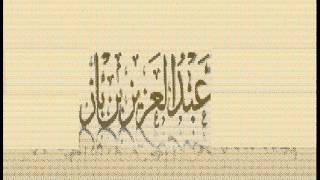 عَبْدُ العَزِيزِ بْنِ بَاز